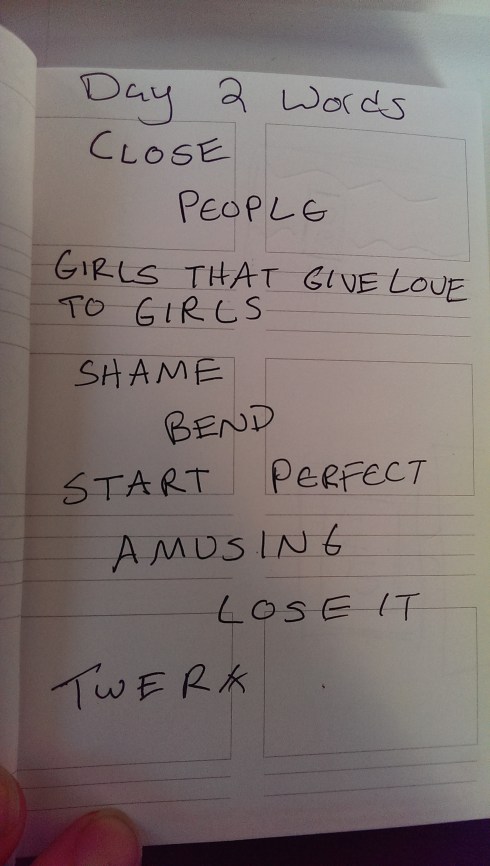 Day 2 Words
CLOSE
PEOPLE
GIRLS THAT GIVE LOVE
TO GIRLS
SHAME
BEND
START PERFECT
AMUSING
LOSE IT
TWERK